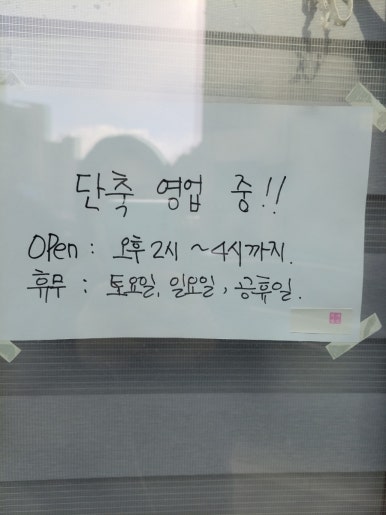 단축 영업 중!!
OPen : 오후 2시 ~4시까지.
휴무 : 토요일, 일요일, 공휴일.